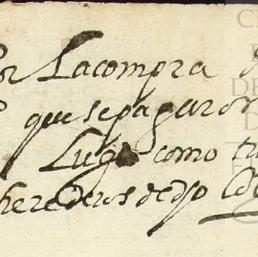 or Lacompra
que sepagaron
Lugo como tu
herederos dedho